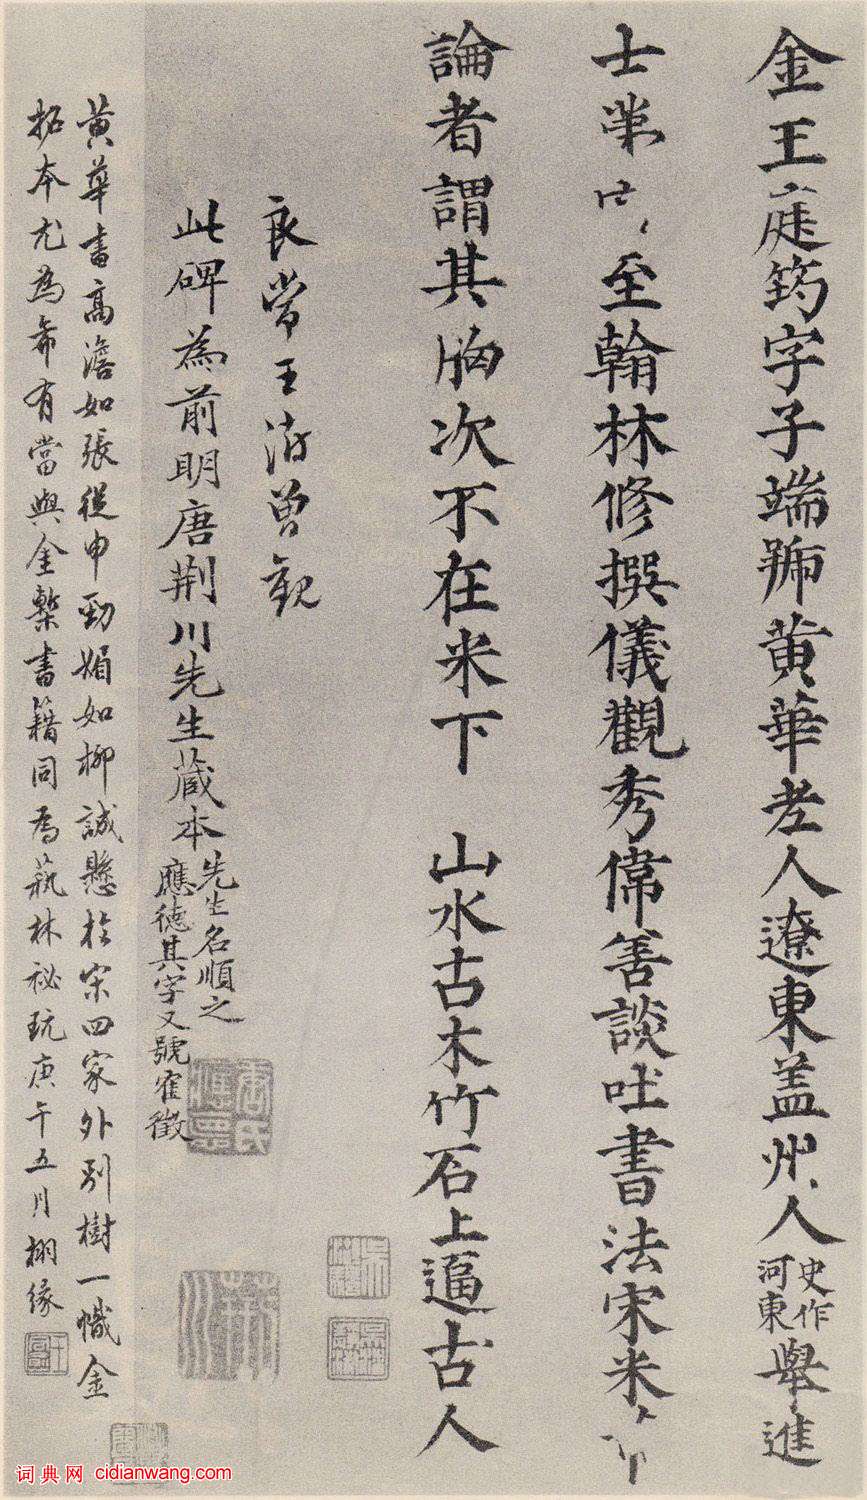 金王庭筠字子端号黄華老人遼東盖州人史作河東舉進
士第 至翰林修撰儀觀秀偉善談吐書法宋米
論者謂其胸次不在米下 山水古木竹石上逼古人
良常王澍曾觀
此碑為前明唐荆川先生蔵本先生名順之應德其字又號
黄華書高澹如張從申勁媚如柳誠懸於宋四家外別樹一幟金
拓本尤為希有當與金槧書籍同為蓺林祕玩庚午五月栩緣
唐氏
词典网 cidianwang.com